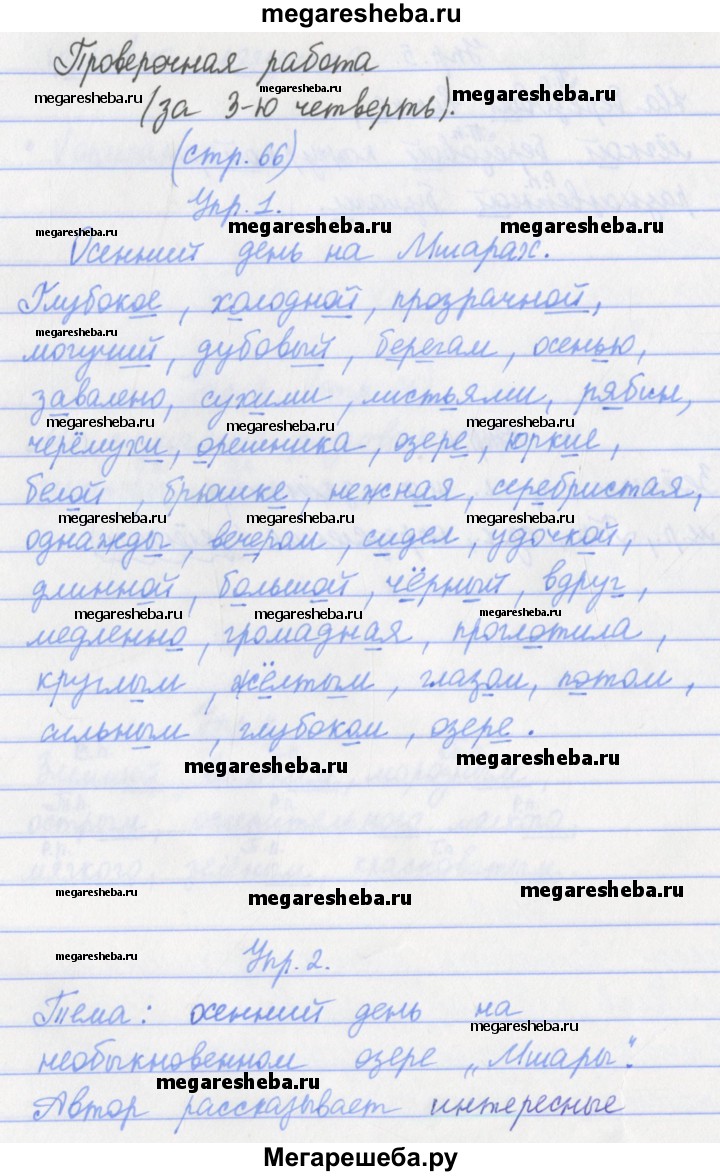 megaresheba.ru
Проверочная работа
megaresheba.ru megaresheba.ru megaresheba.ru
(за 3-ю четверть).
(стр. 66)
Упр. 1.
megaresheba.ru megaresheba.ru megaresheba.ru
Осенний день на Мшарах.
Глубокое, холодной, прозрачной,
megaresheba.ru
могучий, дубовый, берегам, осенью,
завалено, сухими, листьями, рябин,
megaresheba.ru megaresheba.ru megaresheba.ru
черёмухи, орешника, озере, юркие,
белой, брюшке, нежная, серебристая,
megaresheba.ru megaresheba.ru megaresheba.ru
однажды, вечером, сидел, удочкой,
длинной, большой, чёрный, вдруг,
megaresheba.ru megaresheba.ru megaresheba.ru
медленно, громадная, проглотила,
круглым, жёлтым, глазом, потом,
сильным, глубоком, озере.
megaresheba.ru megaresheba.ru
megaresheba.ru megaresheba.ru megaresheba.ru
megaresheba.ru
Упр. 2.
Тема: осенний день на
megaresheba.ru
необыкновенном озере „Мшары".
megaresheba.ru
Автор рассказывает интересные
Мегарешеба.ру